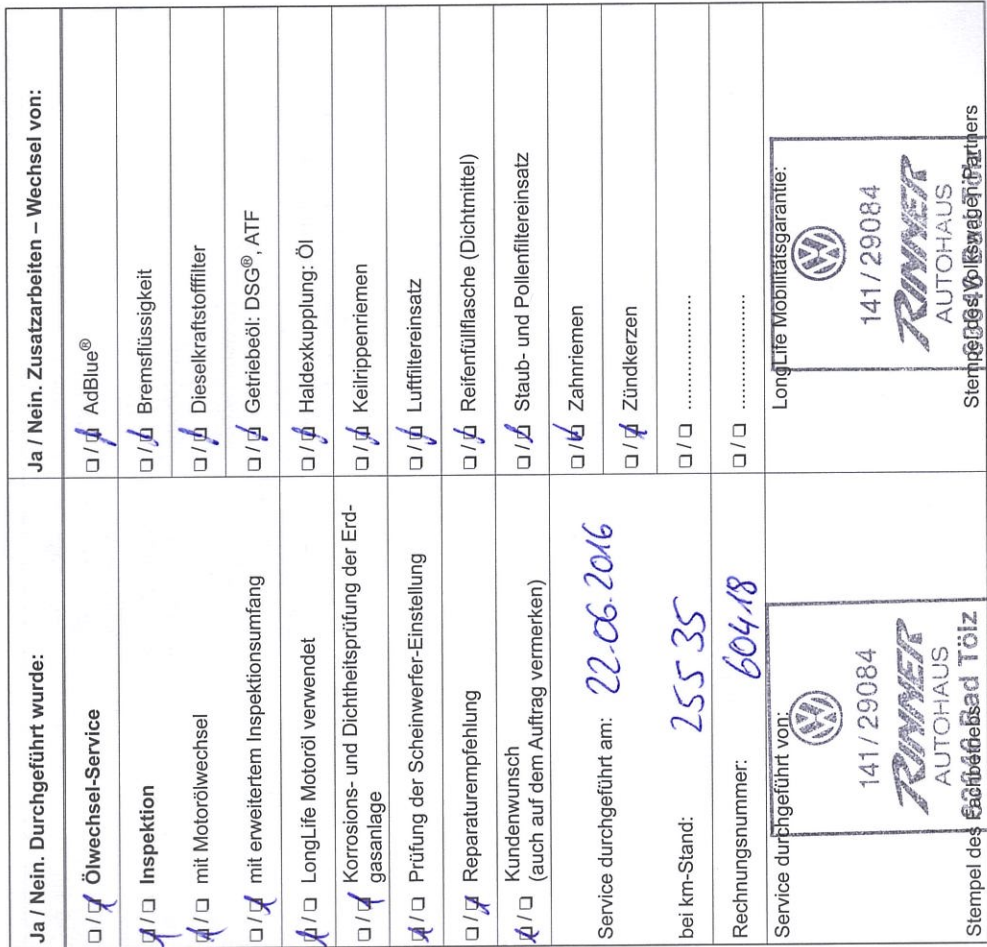 Ja / Nein. Durchgeführt wurde:
☐ / ☒ Ölwechsel-Service
☒ / ☐ Inspektion
☒ / ☐ mit Motorölwechsel
☐ / ☒ mit erweitertem Inspektionsumfang
☒ / ☐ LongLife Motoröl verwendet
☐ / ☒ Korrosions- und Dichtheitsprüfung der Erd-
gasanlage
☒ / ☐ Prüfung der Scheinwerfer-Einstellung
☐ / ☒ Reparaturempfehlung
☒ / ☐ Kundenwunsch
(auch auf dem Auftrag vermerken)
Service durchgeführt am: 22.06.2016
bei km-Stand: 25535
Rechnungsnummer: 60418
Service durchgeführt von:
141/29084
RINNER
AUTOHAUS
83646 Bad Tölz
Stempel des Fachbetriebs
Ja / Nein. Zusatzarbeiten – Wechsel von:
☐ / ☒ AdBlue®
☐ / ☒ Bremsflüssigkeit
☐ / ☒ Dieselkraftstofffilter
☐ / ☒ Getriebeöl: DSG®, ATF
☐ / ☒ Haldexkupplung: Öl
☐ / ☒ Keilrippenriemen
☐ / ☒ Luftfiltereinsatz
☐ / ☒ Reifenfüllflasche (Dichtmittel)
☐ / ☒ Staub- und Pollenfiltereinsatz
☐ / ☒ Zahnriemen
☐ / ☒ Zündkerzen
☐ / ☐ ....................
☐ / ☐ ....................
LongLife Mobilitätsgarantie:
141/29084
RINNER
AUTOHAUS
83646 Bad Tölz
Stempel des Volkswagen Partners